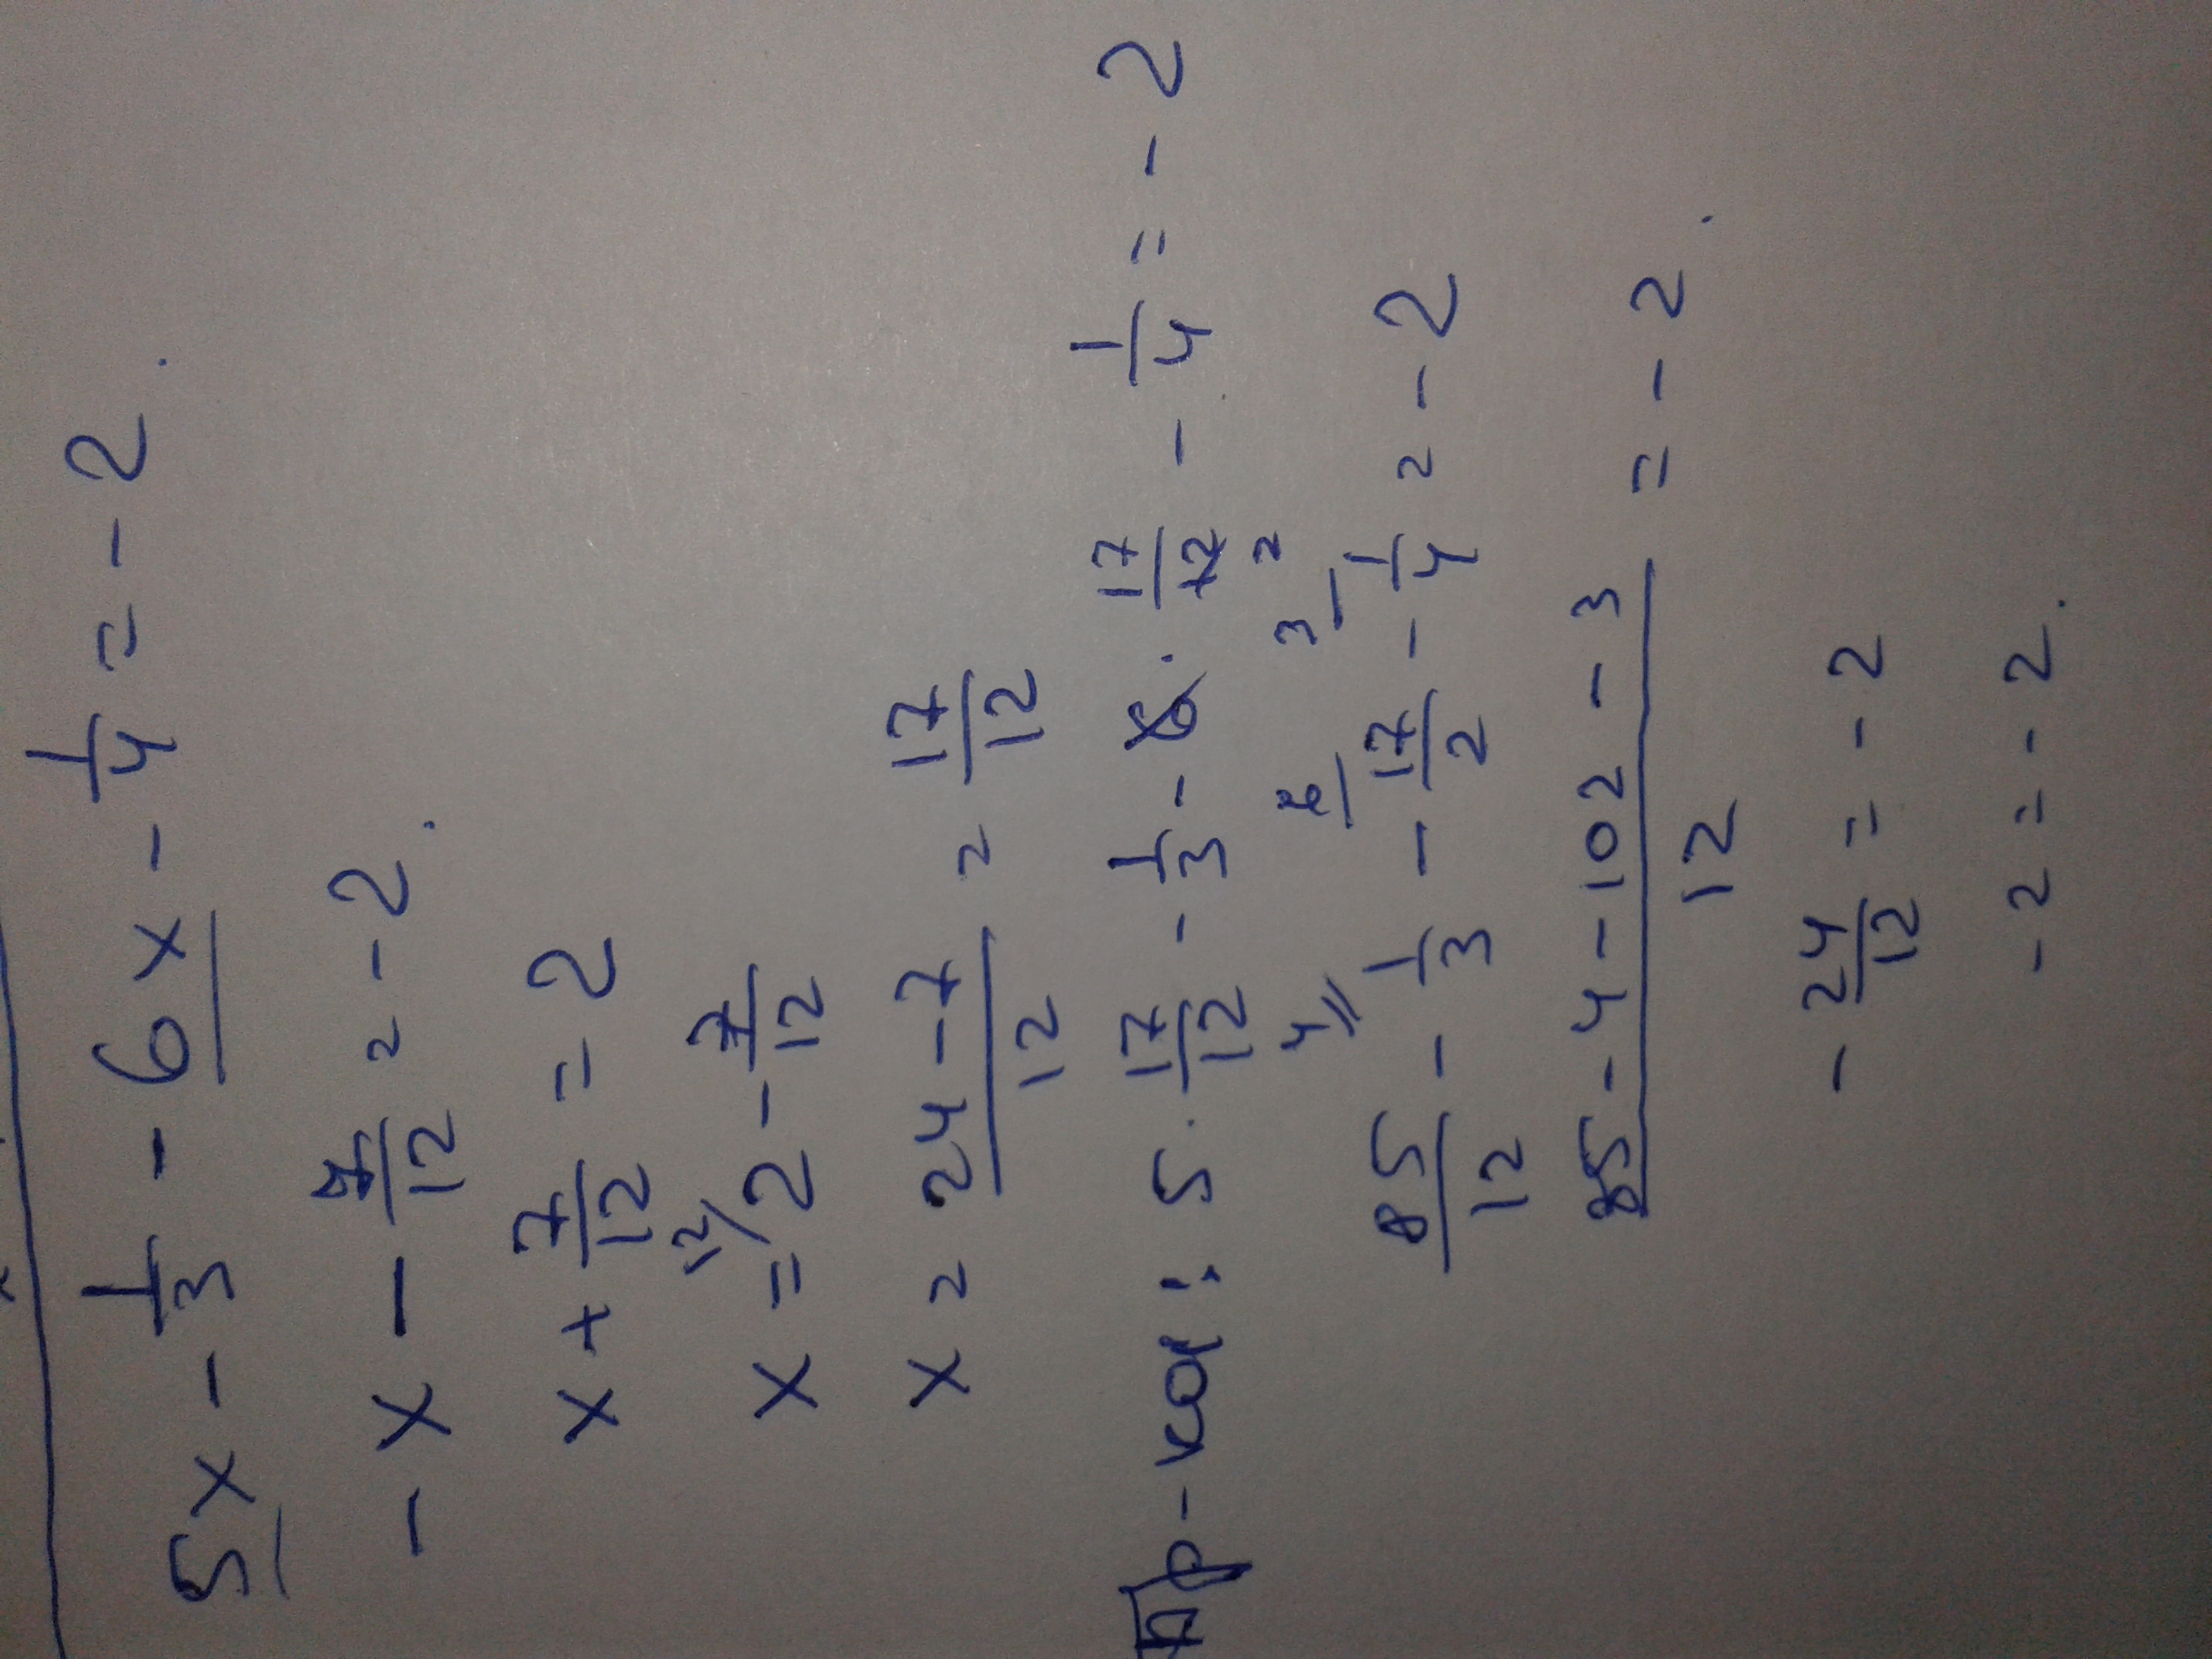 5x - 1/3 - 6x - 1/4 = -2.
-x - 7/12 = -2.
x + 7/12 = 2
x = 12/ 2 - 7/12
x = (24 - 7)/12 = 17/12
Пр-ка: 5 · 17/12 - 1/3 - 6 · 17/12 2 - 1/4 = -2
85/12 - 4/ 1/3 - 6/ 17/2 - 3/ 1/4 = -2
(85 - 4 - 102 - 3)/12 = -2.
-24/12 = -2
-2 = -2.